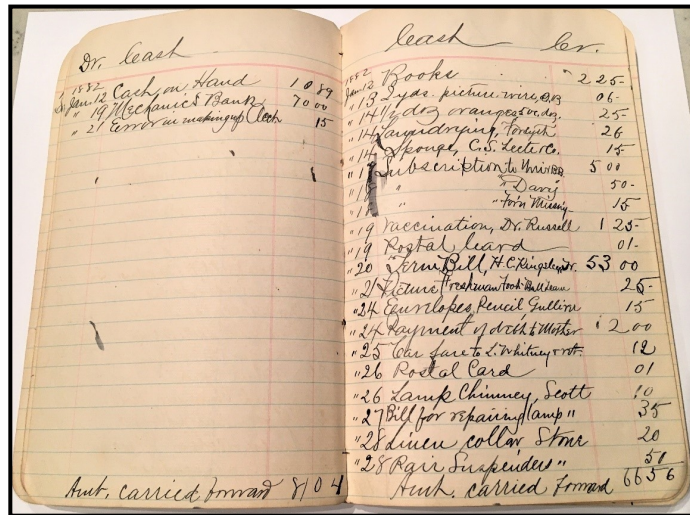 Dr. Cash
1882
Jan. 12 Cash on Hand 10 89
" 19 Mechanics Bank 70 00
" 21 Error in making up Cash 15
Amt. carried forward 81 04
Cash Cr.
1882
Jan. 12 Books 2 25
" 13 2 yds. picture wire, 06
" 14 1/2 doz oranges 50c. doz. 25
" 14 Laundrying, Foreign 26
" 14 Sponge, C. S. Leete Co. 15
Subscription to Univ. 5 00
" " Davy 50
" For'n Missny 15
" 19 Vaccination, Dr. Russell 1 25
" 19 Postal Card 01
" 20 Term Bill, H. C. Kingsley Tr. 53 00
" 21 Picture Freshman Foot-Ball Team 25
" 24 Envelopes, Pencil 15
" 24 Payment of debt to Mother 2 00
" 25 Car fare to L. Whitney + rt. 12
" 26 Postal Card 01
" 26 Lamp Chimney, Scott 10
" 27 Bill for repairing lamp " 35
" 28 Linen collar, Stone 20
" 28 Pair Suspenders " 50
Amt. carried forward 66 56